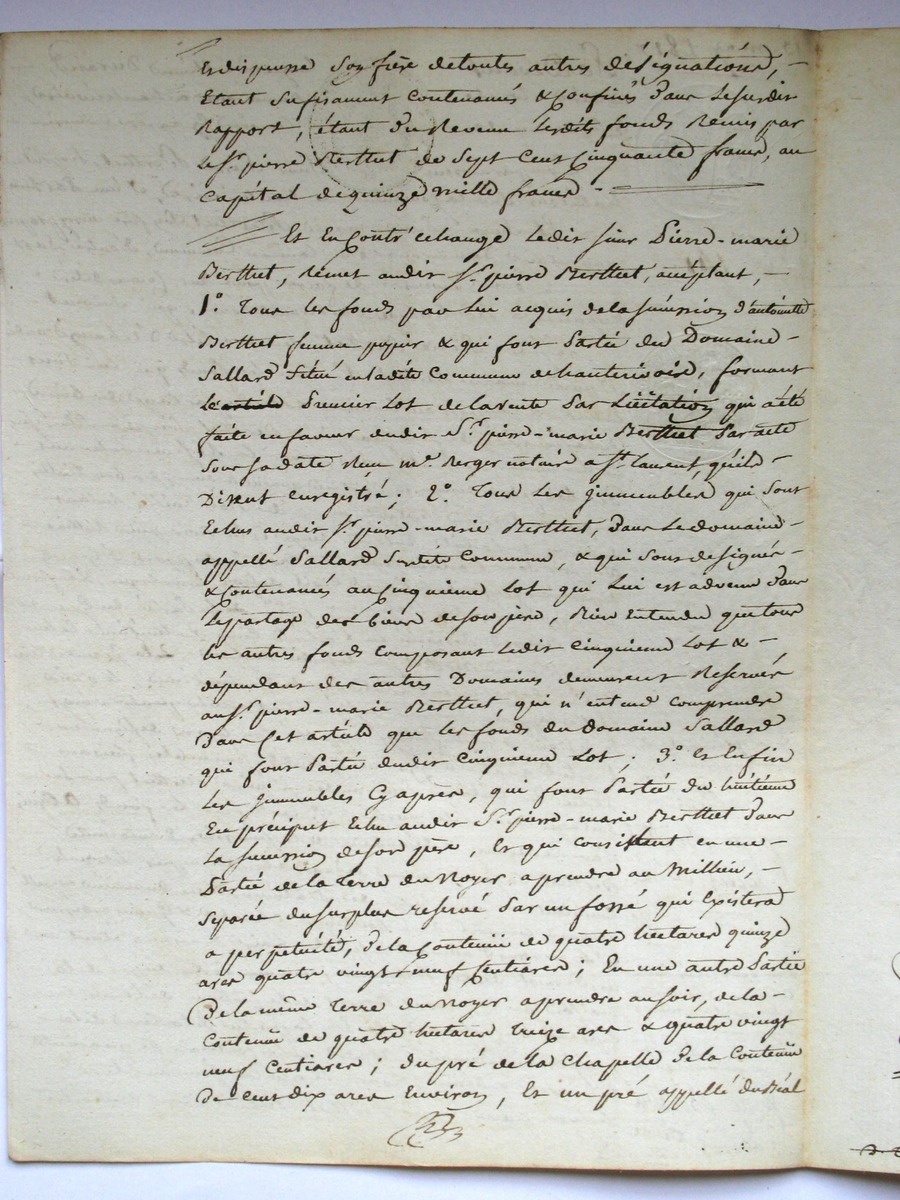 Et dispense son frère de toutes autres désignations, –
Etant sufisament contenancés & confinés dans le susdit
rapport, étant du revenu lesdits fonds remis par
le Sr. pierre Berthet de Sept Cent Cinquante francs, au
Capital de quinze mille francs –
Et en Contr'echange ledit sieur Pierre-marie
Berthet, remet audit Sr. pierre Berthet, acceptant, –
1°. Tous les fonds par lui acquis de la succession d'antoinette
Berthet femme & qui font Partie du Domaine –
Sallard situé en ladite Commune de hauterivoire, formant
Premier Lot de la vente Par Licitation qui a été
faite en faveur dudit Sr. pierre-marie Berthet Par acte
Sous sa date Reçu me. Berger notaire a St. Laurent, qu'ils –
Disent enregistré ; 2°. Tous les immeubles qui sont
Echus audit Sr. pierre-marie Berthet, dans le domaine –
appellé Sallard susdite Commune, & qui sont designés –
& Contenancés au Cinquieme Lot qui Lui est advenu dans
Le partage des biens de son père, Bien Entendu que tous
les autres fonds Composant Ledit Cinquieme Lot & –
dépendant des autres Domaines demeurent Reservés
au Sr. pierre-marie Berthet, qui n'entend Comprendre
Dans Cet article que les fonds du domaine Sallard
qui font Partie dudit Cinquieme Lot ; 3°. Et Enfin
Les Immeubles Cy après, qui font Partie du huitieme
En préciput Echu audit Sr. pierre-marie Berthet Dans
La succession de son père, Et qui consistent en une –
Partie de la Terre du Noyer a prendre au Millieu, –
Séparée du surplus reservé Par un fossé qui Existera
a perpétuité, De la Contenüe de quatre hectares quinze
ares quatre vingt neuf Centiares ; En une autre Partie
De la même Terre du Noyer a prendre au soir, de la –
Contenüe de quatre hectares treize ares & quatre vingt
neuf Centiares ; du pré de la Chapelle De la Contenüe
De Cent dix ares Environ, Et un pré appellé du Béal